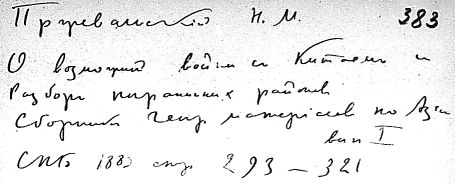 Пржевальский Н. М. 383
О возможной войне с Китаем и
Разборъ пограничных районов
Сборник Геогр материалов по Азии
вып I
СПб 1883 стр 293 — 321